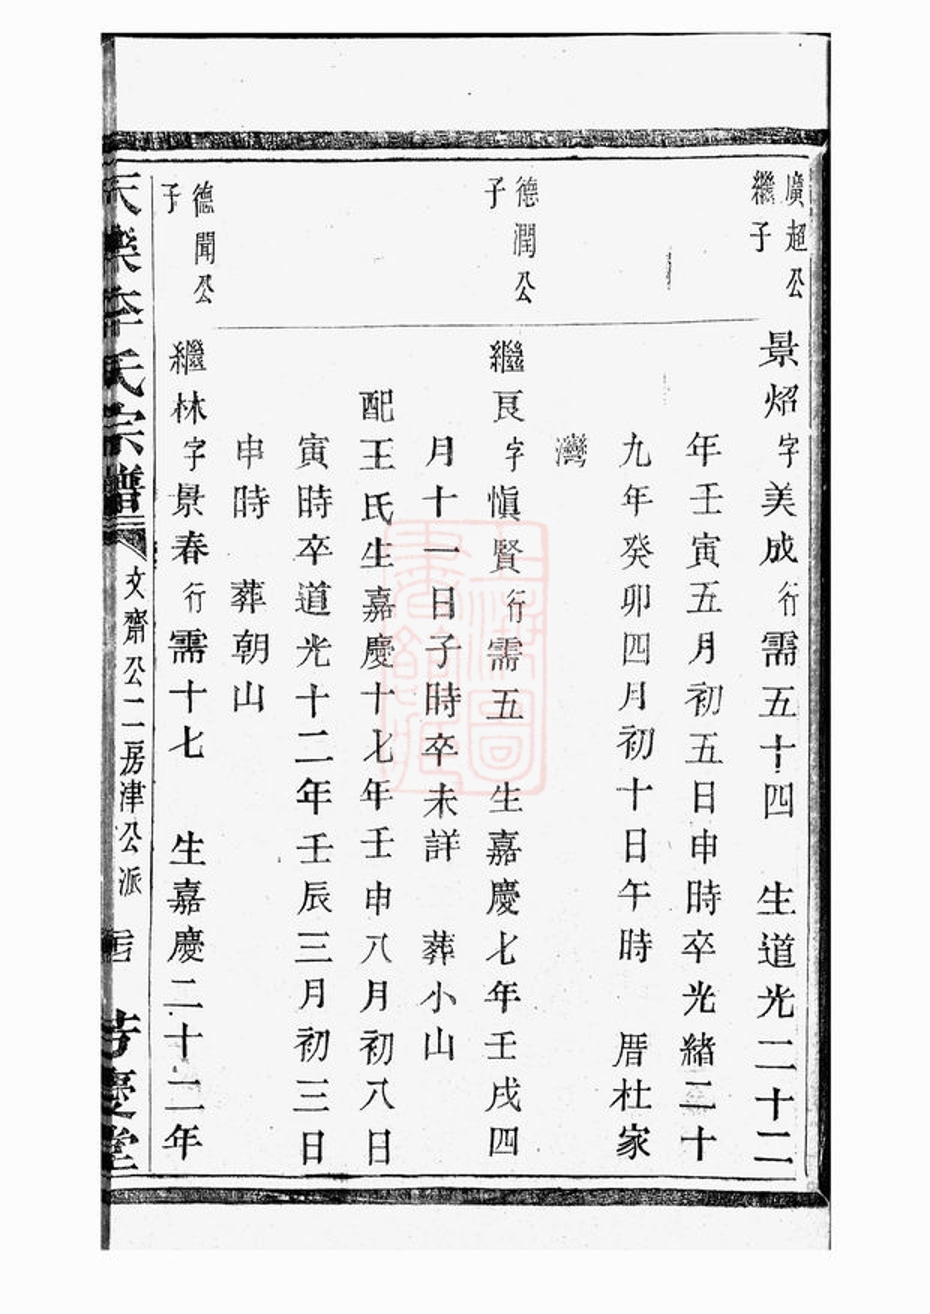 廣超公
繼子
景炤字美成行需五十四 生道光二十二
年壬寅五月初五日申時卒光緒二十
九年癸卯四月初十日午時 厝杜家
灣
德潤公
子
繼良字愼賢行需五 生嘉慶七年壬戌四
月十一日子時卒未詳 葬小山
配王氏生嘉慶十七年壬申八月初八日
寅時卒道光十二年壬辰三月初三日
申時 葬朝山
德聞公
子
繼林字景春行需十七 生嘉慶二十二年
天樂李氏宗譜
文齋公二房津公派
慶堂
上海圖
書館藏